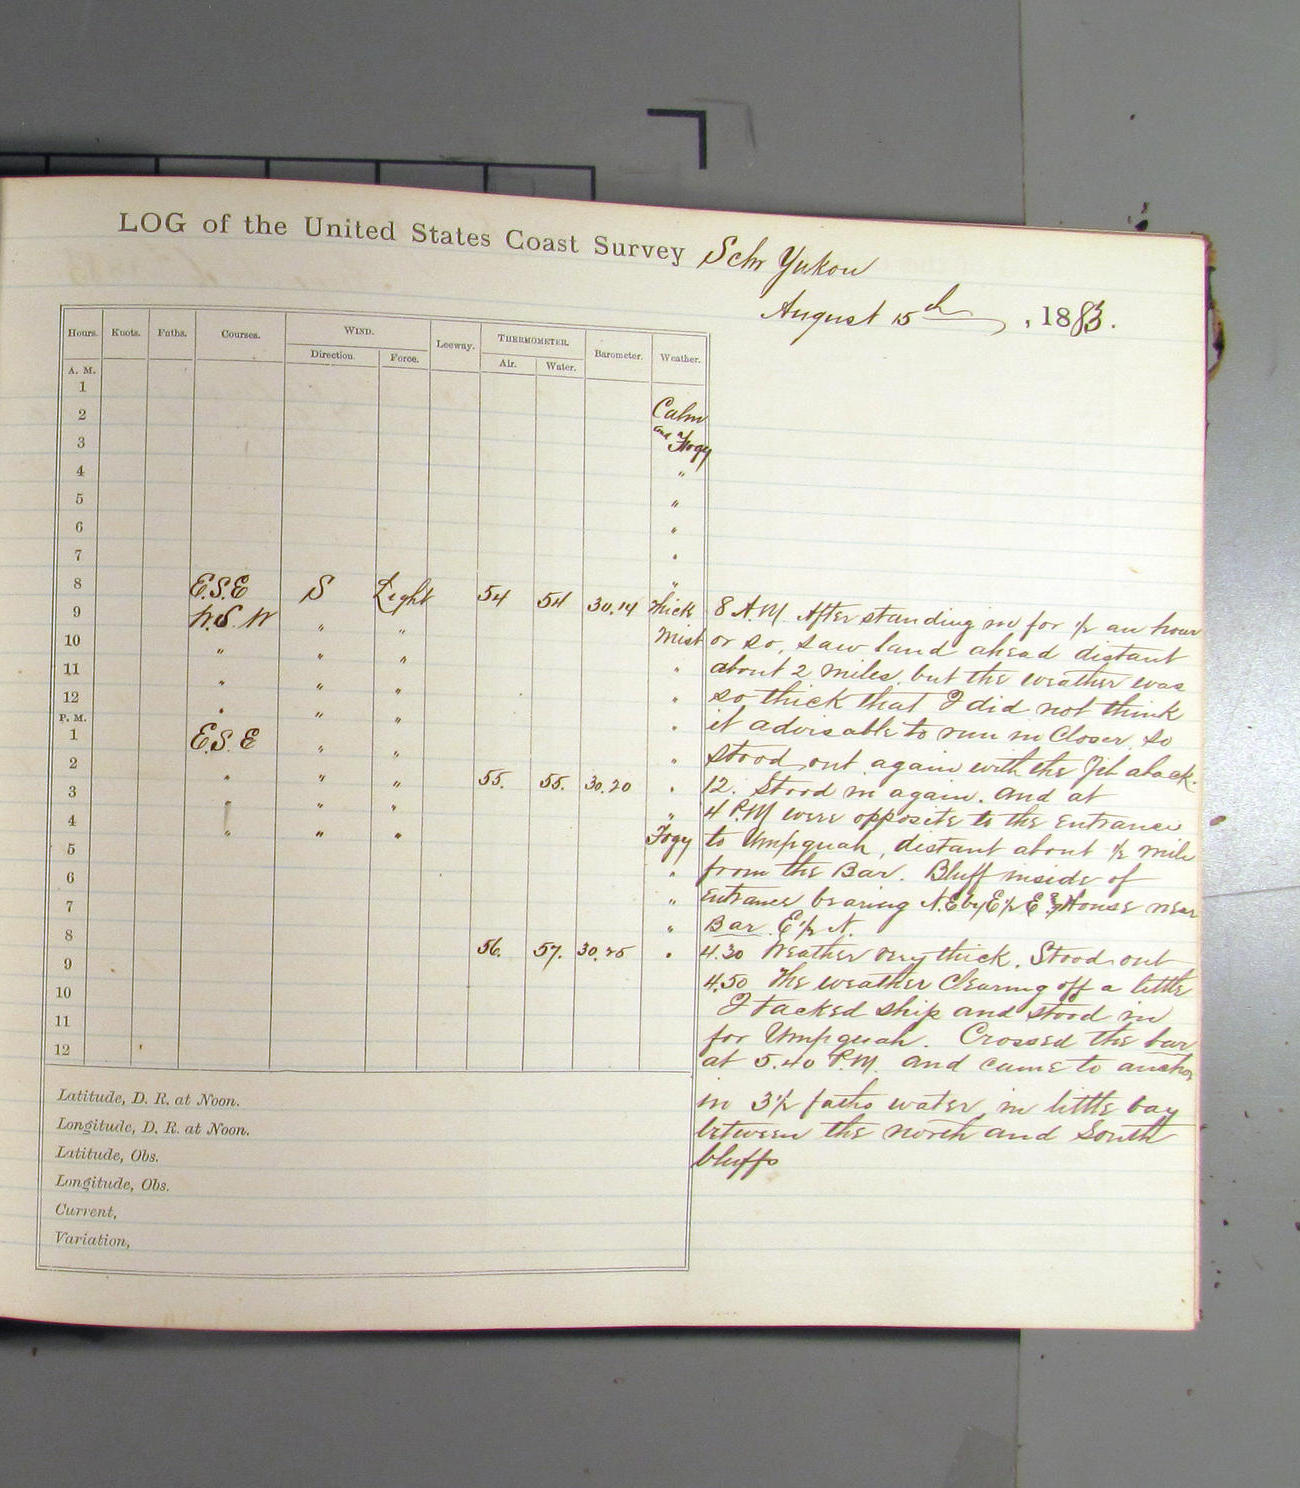 LOG of the United States Coast Survey Schr Yukon
August 15th, 1883.
Hours. Knots. Faths. Courses. WIND. Leeway. THERMOMETER. Barometer. Weather.
Direction. Force. Air. Water.
A. M.
1
2 Calm
3 and Fogy
4 "
5 "
6 "
7 "
8 E.S.E S Light 54 54 30.14 Thick
9 W.S.W " " Mist
10 " " " "
11 " " " "
12 " " " "
P. M.
1 E.S.E " " "
2 " " " 55. 55. 30.20 "
3 " " "
4 " " " Fogy
5 "
6 "
7 "
8 56. 57. 30.25 "
9
10
11
12
8 A.M. After standing in for ½ an hour
or so, saw land ahead distant
about 2 miles. but the weather was
so thick that I did not think
it advisable to run in Closer. so
stood out again with the Jib aback.
12. Stood in again. and at
4 P.M were opposite to the Entrance
to Umpquah, distant about ½ mile
from the Bar. Bluff inside of
Entrance bearing N.E by E½E House near
Bar E½N.
4.30 Weather very thick. Stood out
4.50 The weather Clearing off a little
I tacked ship and stood in
for Umpquah. Crossed the bar
at 5.40 P.M. and came to anchor
in 3½ faths water in little bay
between the north and South
bluffs
Latitude, D. R. at Noon.
Longitude, D. R. at Noon.
Latitude, Obs.
Longitude, Obs.
Current,
Variation,